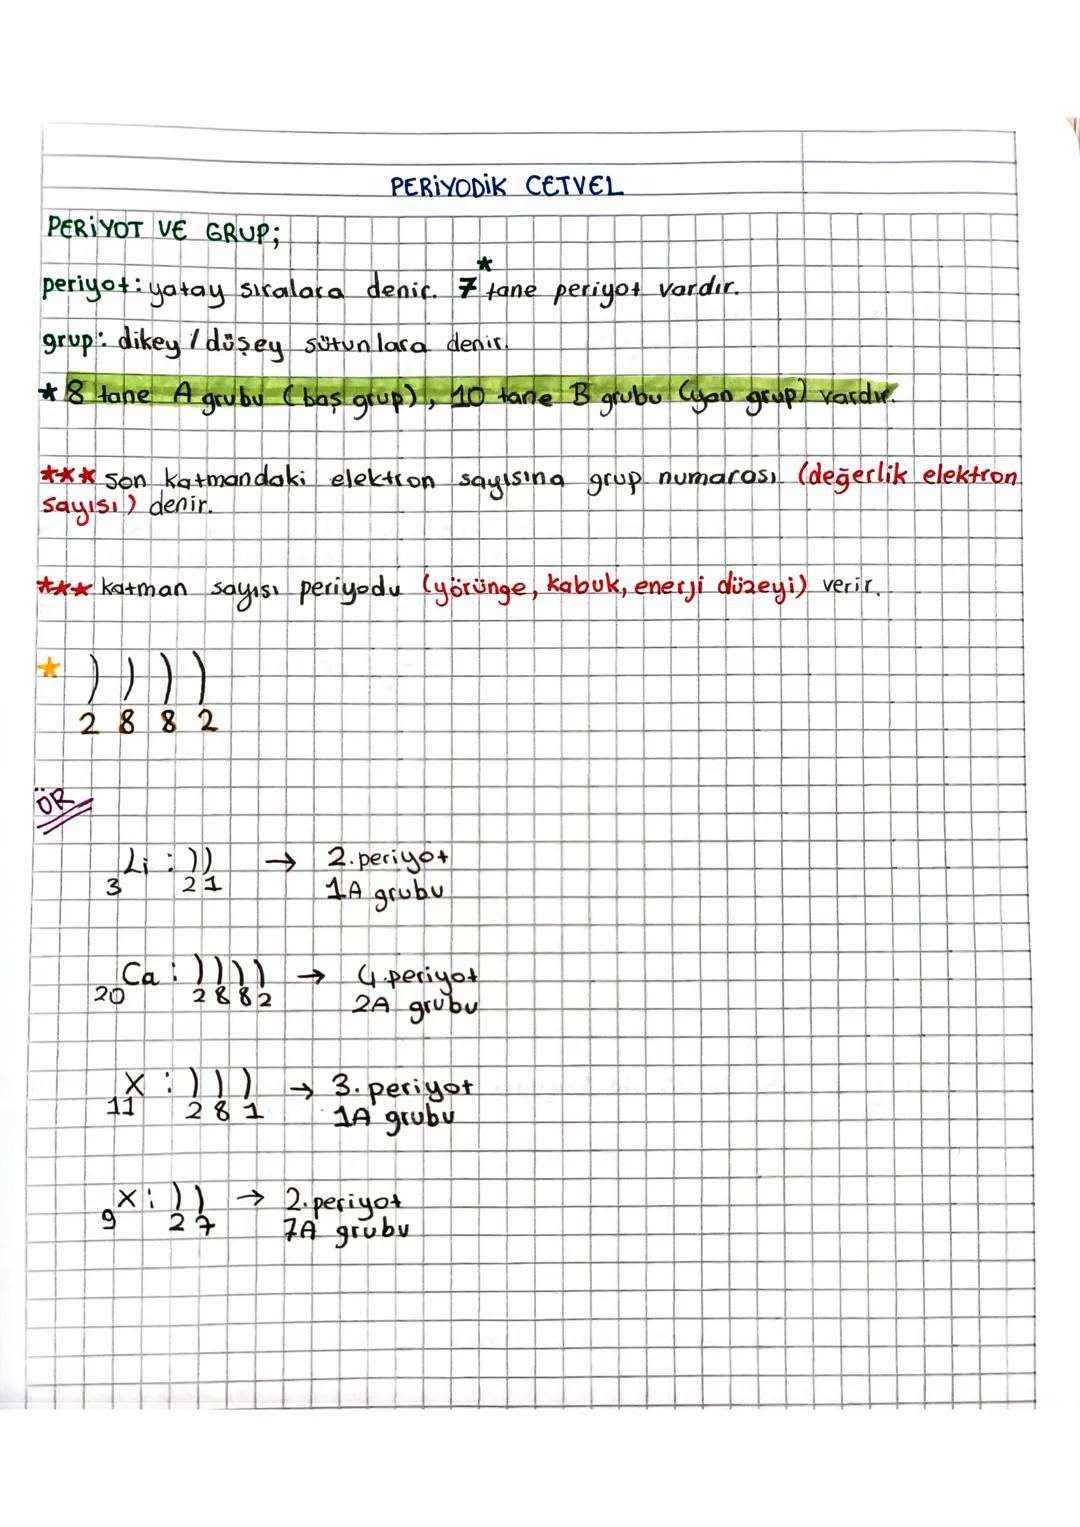 PERİYODİK CETVEL
PERİYOT VE GRUP;
periyot: yatay sıralara denir. 7* tane periyot vardır.
grup: dikey / düşey sütunlara denir.
* 8 tane A grubu (baş grup), 10 tane B grubu (yan grup) vardır.
*** son katmandaki elektron sayısına grup numarası (değerlik elektron
sayısı) denir.
*** katman sayısı periyodu (yörünge, kabuk, enerji düzeyi) verir.
* ) ) ) )
2 8 8 2
ÖR
Li : )) → 2. periyot
3 2 1 1A grubu
Ca : )))) → 4. periyot
20 2 8 8 2 2A grubu
X : ))) → 3. periyot
11 2 8 1 1A grubu
X : )) → 2. periyot
9 2 7 7A grubu